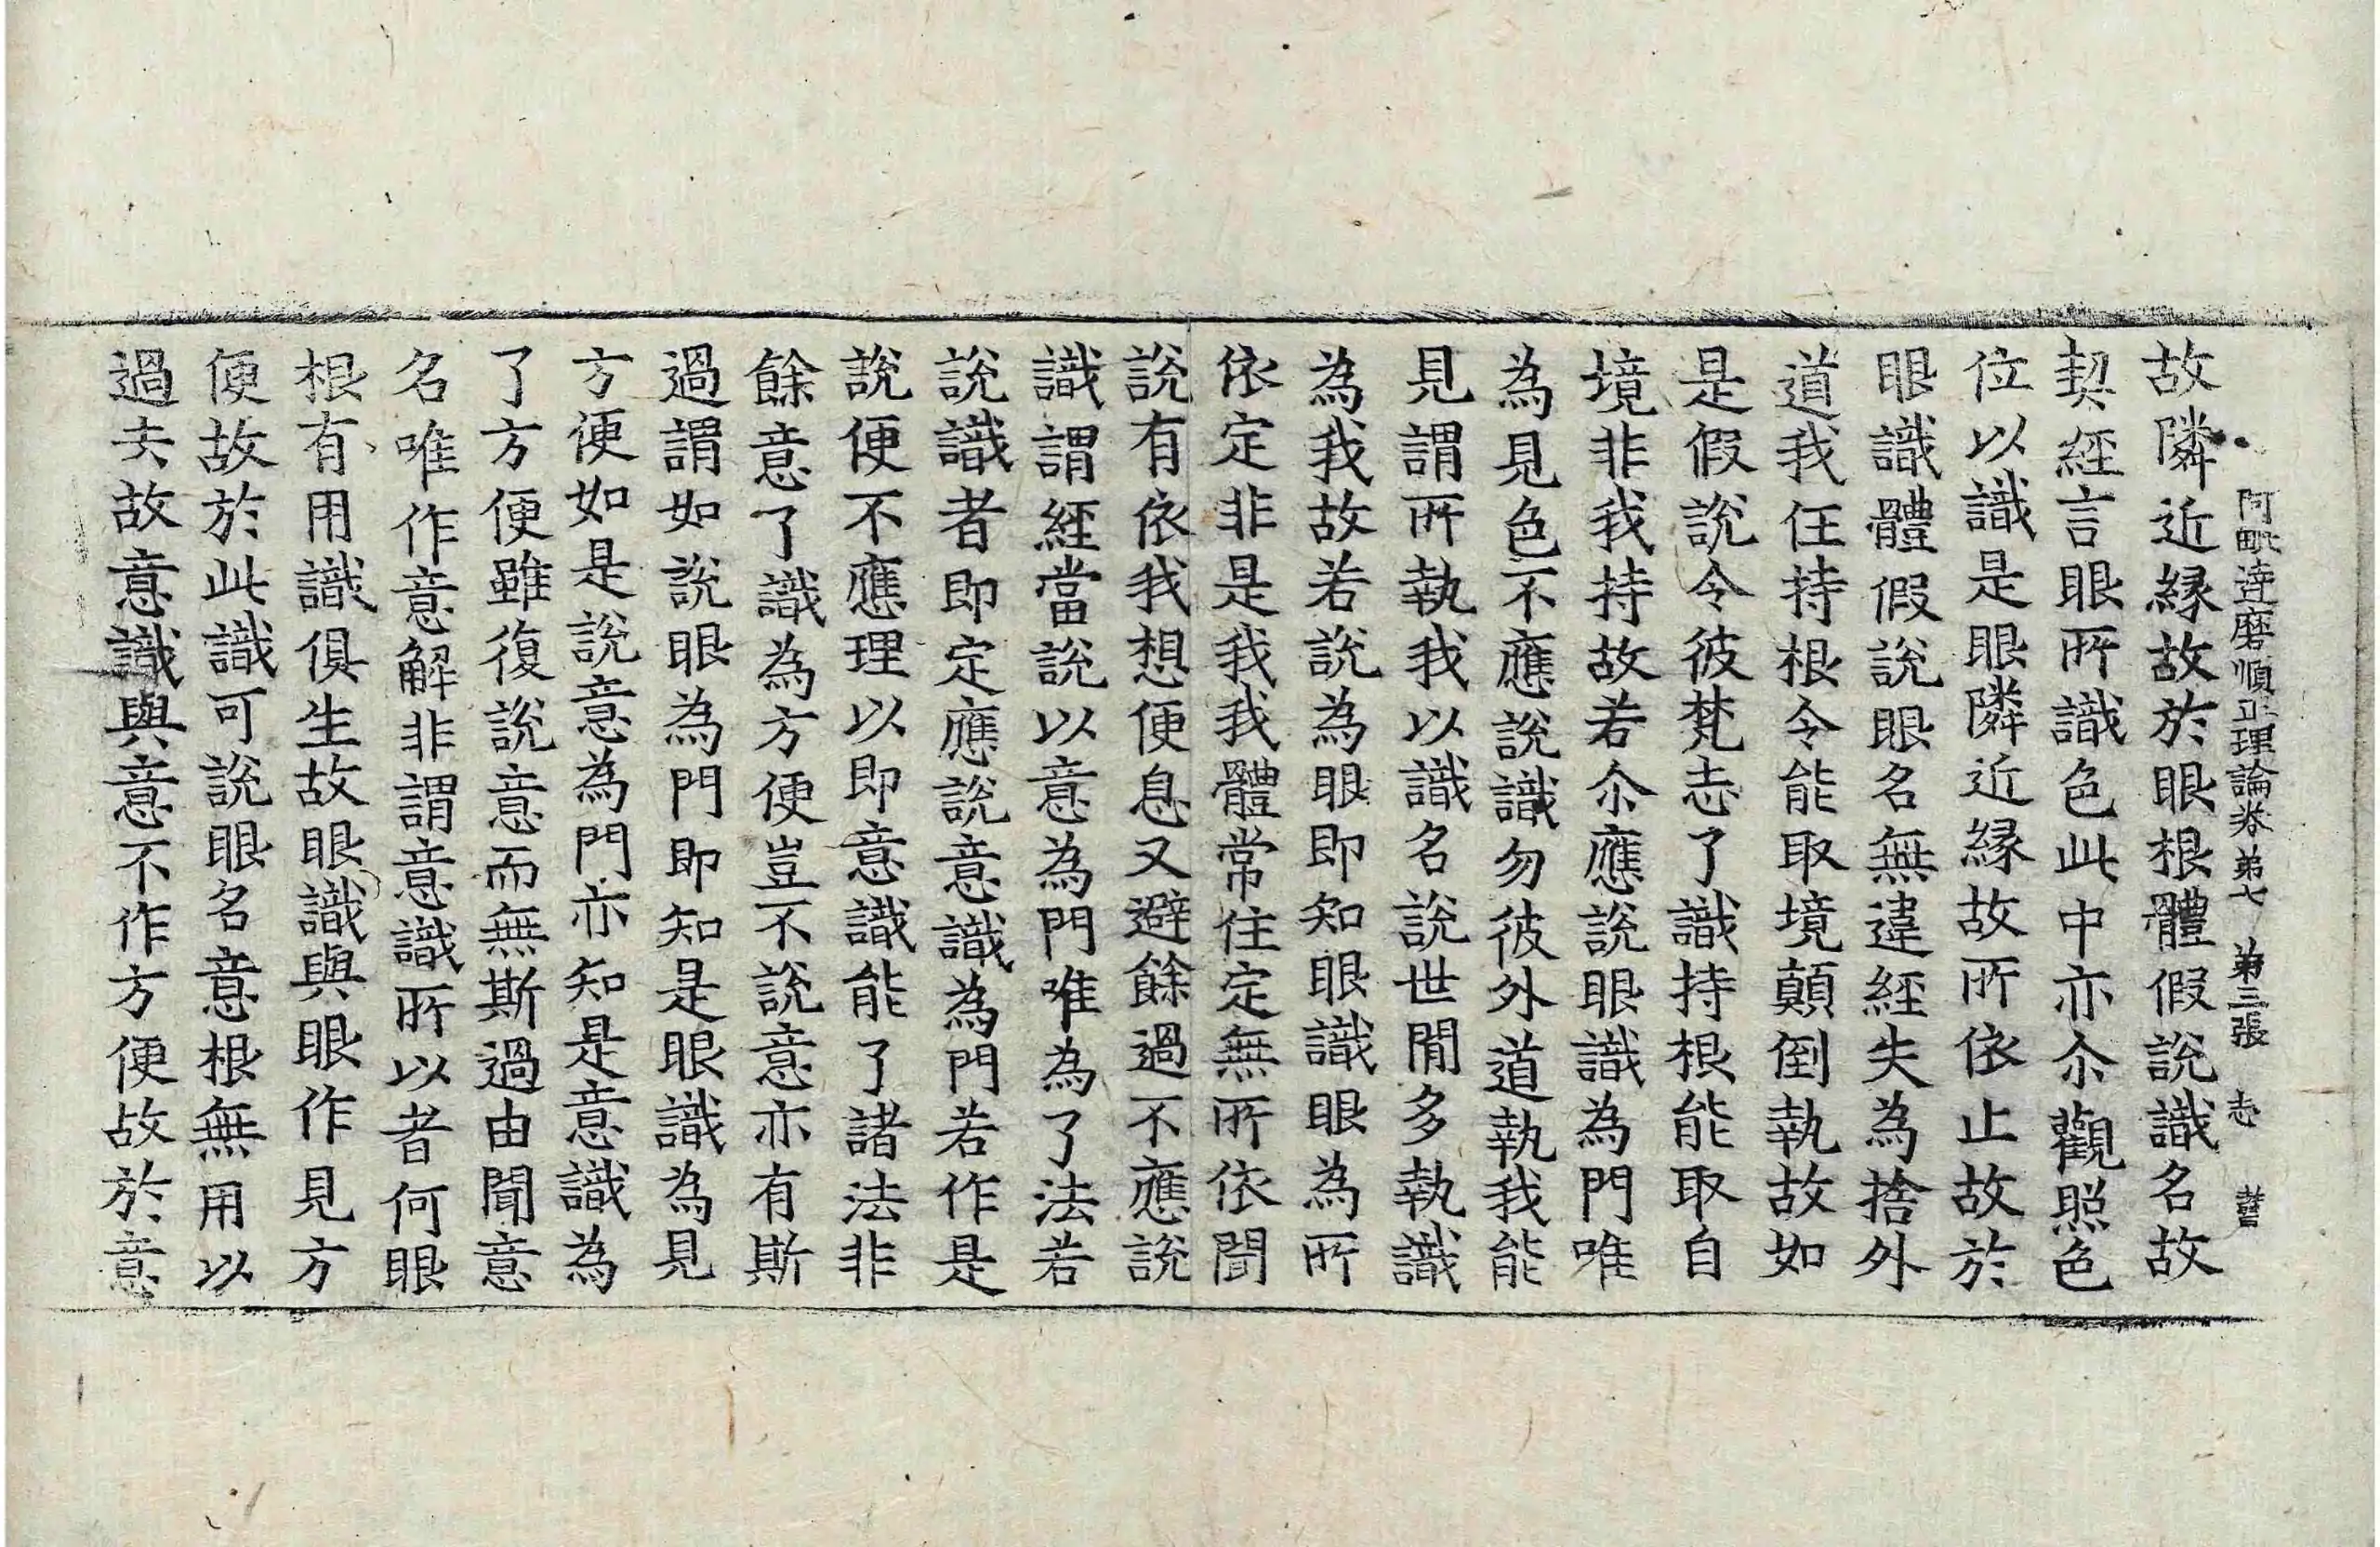 阿毗逹磨順正理論卷弟七 弟三張 志
故隣近緣故於眼根體假說識名故
契經言眼所識色此中亦尒觀照色
位以識是眼隣近緣故所依止故於
眼識體假說眼名無違經失為捨外
道我任持根令能取境顛倒執故如
是假說令彼梵志了識持根能取自
境非我持故若尒應說眼識為門唯
為見色不應說識勿彼外道執我能
見謂所執我以識名說世間多執識
為我故若說為眼即知眼識眼為所
依定非是我我體常住定無所依聞
說有依我想便息又避餘過不應說
識謂經當說以意為門唯為了法若
說識者即定應說意識為門若作是
說便不應理以即意識能了諸法非
餘意了識為方便豈不說意亦有斯
過謂如說眼為門即知是眼識為見
方便如是說意為門亦知是意識為
了方便雖復說意而無斯過由聞意
名唯作意解非謂意識所以者何眼
根有用識俱生故眼識與眼作見方
便故於此識可說眼名意根無用以
過去故意識與意不作方便故於意